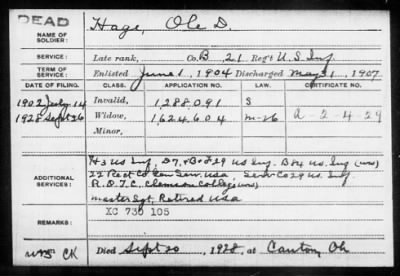 DEAD
NAME OF SOLDIER: Hage, Ole D.
SERVICE: Late rank, Co. B, 21 Reg't U.S. Inf
TERM OF SERVICE: Enlisted June 1, 1904 Discharged May 31, 1907
DATE OF FILING. CLASS. APPLICATION NO. LAW. CERTIFICATE NO.
1902 July 14 Invalid, 1288091 S
1928 Sept 26 Widow, 1624604 m-26 A-2-4-29
Minor,
ADDITIONAL SERVICES: H3 US Inf, D7, & Bof 29 US Inf. B84 US. Inf
22 Rect Co Gen Serv. USA, Serv Co 29 US. Inf.
R.O.T.C. Clemson College
master Sgt, Retired USA
REMARKS: XC 730 105
CK Died Sept 20, 1928, at Canton, Oh